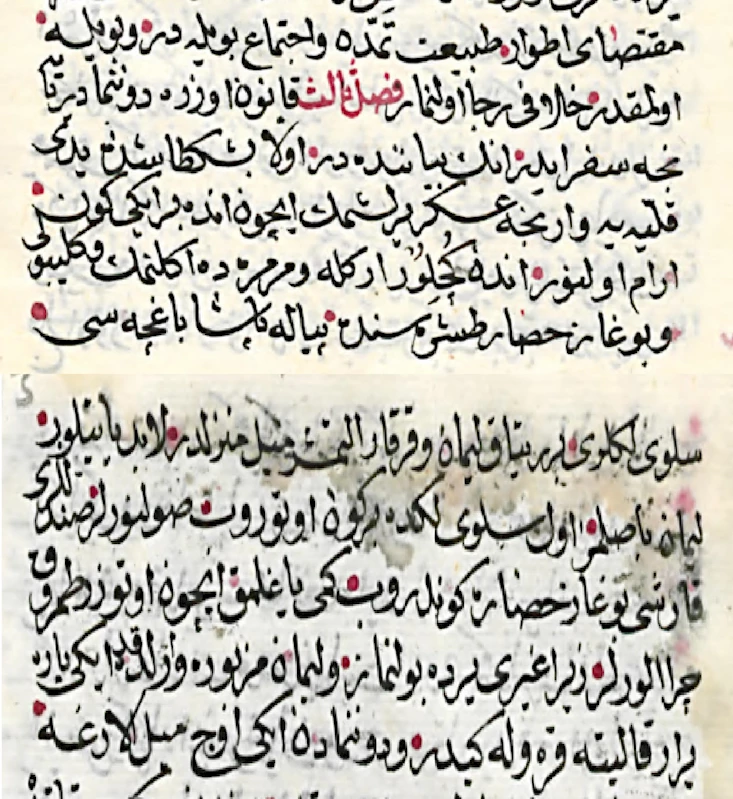 مقتضای اطوار طبیعت تمدّن و اجتماع بویله در و بویله
اولمقدر خلافی رجا اولنماز فصل ثالث قانون اوزره دوننما دریا
نجه سفر ایدر انك بیاننده در اولا بشکطاشدن یدی
قلّیه یه واریجه عسکر یرلشمك ایچون انده بر ایکی کون
ارام اولینور اندن کلور ارکله و مرمره ده اکلنمك و کلیبولی
و بوغاز حصار طشره سنده پیاله پاشا باغچه سی
سلوی لکلوی بربر یتاق لیمان و قرقار التمشر میل منزلدر لابد یا یتیلور
لیمانه باصلمز اول سلوی لکده بر کون اوتوروب صو لینور لرضندلری
قارشی بوغاز حصارنه کوندروب کمی یاغلمق ایچون اوتوز طمروق
چرا الورلر زیرا غیری یرده بولنماز و لیمان مزبوره وارلدقده ایکی یاره
یرار قالیته قره وله کیدر و دوننمادن ایکی اوچ میل لارغه